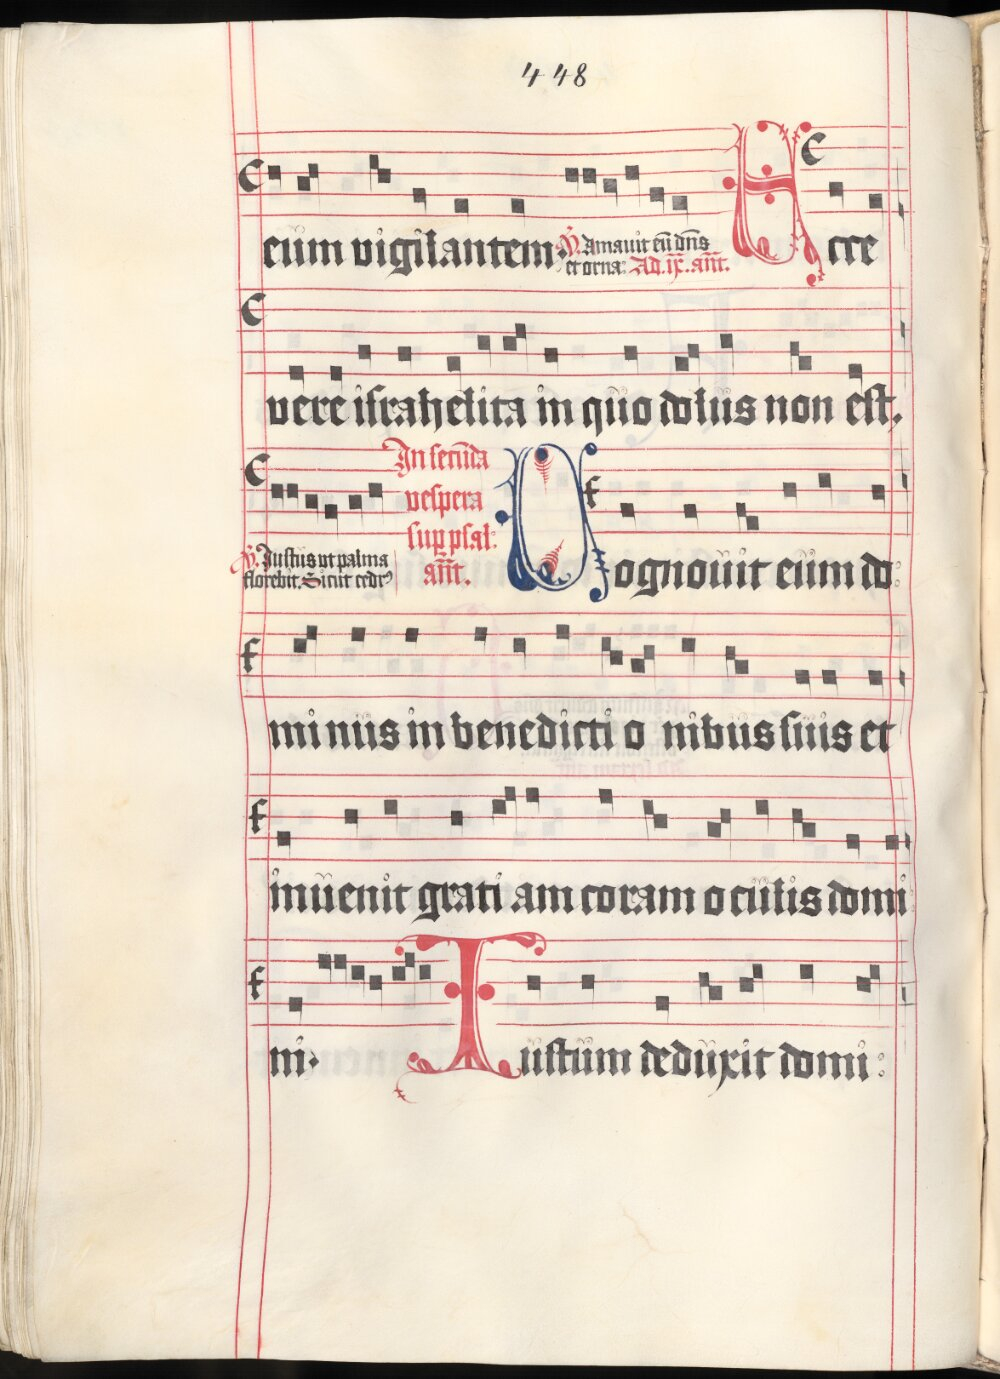 448
eum vigilantem. ℣. Amauit eū dn̄s
et orna: Ad. ix. an̄t. Ecce
vere israhelita in quo dolus non est.
In secūda
vespera
sup psal:
an̄t.
℣. Justus ut palma
florebit. Sicut cedrꝰ
Cognouit eum do
minus in benedicti o nibus suis et
inuenit grati am coram oculis domi
ni. Iustum deduxit domi: